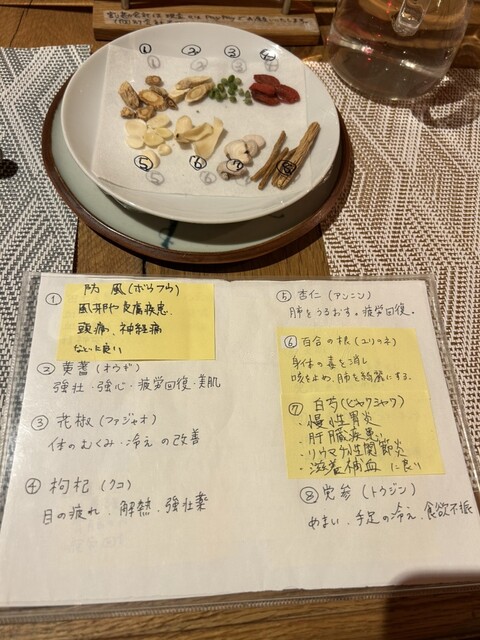 ① ② ③ ④
⑤ ⑥ ⑦ ⑧
① 防風(ボウフウ)
風邪や皮膚疾患
頭痛、神経痛
などに良い
② 黄耆(オウギ)
強壮・強心・疲労回復・美肌
③ 花椒(ファジャオ)
体のむくみ・冷えの改善
④ 枸杞(クコ)
目の疲れ、解熱、強壮薬
⑤ 杏仁(アンニン)
肺をうるおす。疲労回復。
⑥ 百合の根(ユリネ)
身体の毒を消し
咳を止め、肺を綺麗にする。
⑦ 白芍(ビャクシャク)
・慢性胃炎
・肝臓疾患
・リウマチ性関節炎
・滋養補血 に良い
⑧ 党参(トウジン)
めまい、手足の冷え、食欲不振